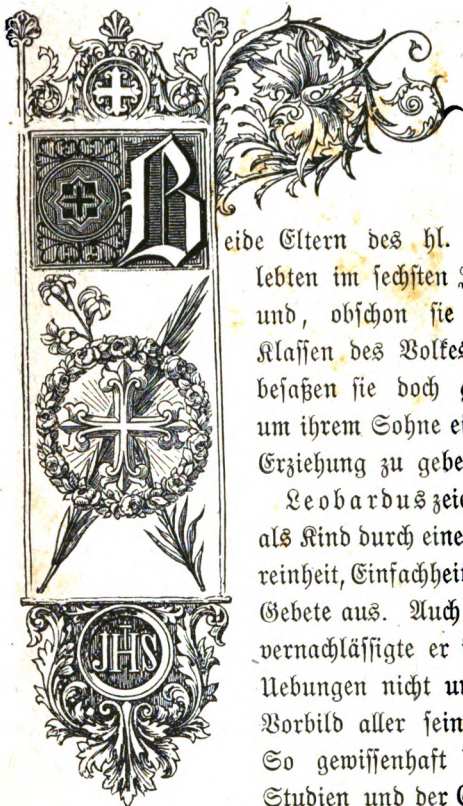 Beide Eltern des hl.
lebten im sechsten
und, obschon sie
Klassen des Volkes
besaßen sie doch
um ihrem Sohne ei
Erziehung zu gebe
Leobardus zeic
als Kind durch eine
reinheit, Einfachheit
Gebete aus. Auch
vernachlässigte er
Uebungen nicht un
Vorbild aller sein
So gewissenhaft
Studien und der
JHS